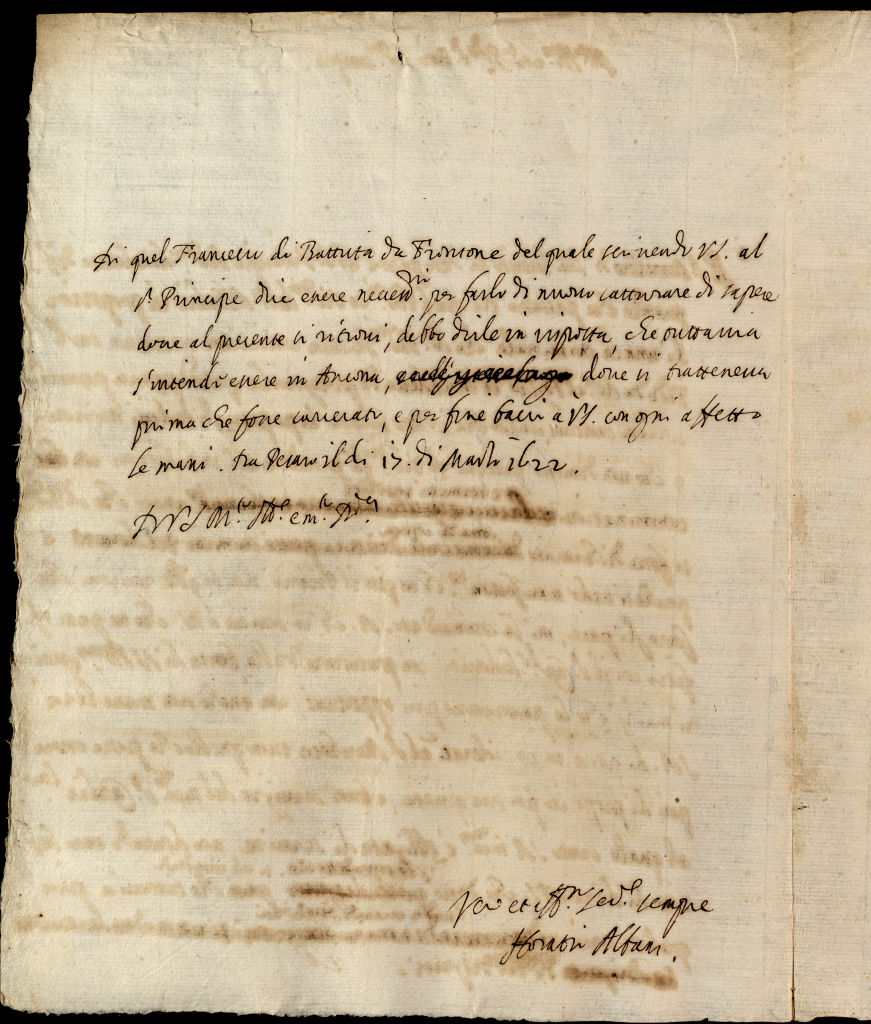 Di quel Francesco di Battista da Frontone del quale scrivendo VS. al
s.r Principe dice essere necess.rio per farlo di nuovo catturare di sapere
dove al presente si ritrovi, debbo dirle in risposta, che tuttavia
s'intende essere in Ancona, dove si tratteneva
prima che fosse carcerato, e per fine bacio a VS. con ogni affetto
le mani. Da Pesaro il di 17. di Marzo 1622.
Di VS M.to Ill.e e m.to
et aff.mo ser.re sempre
Horatio Albani.